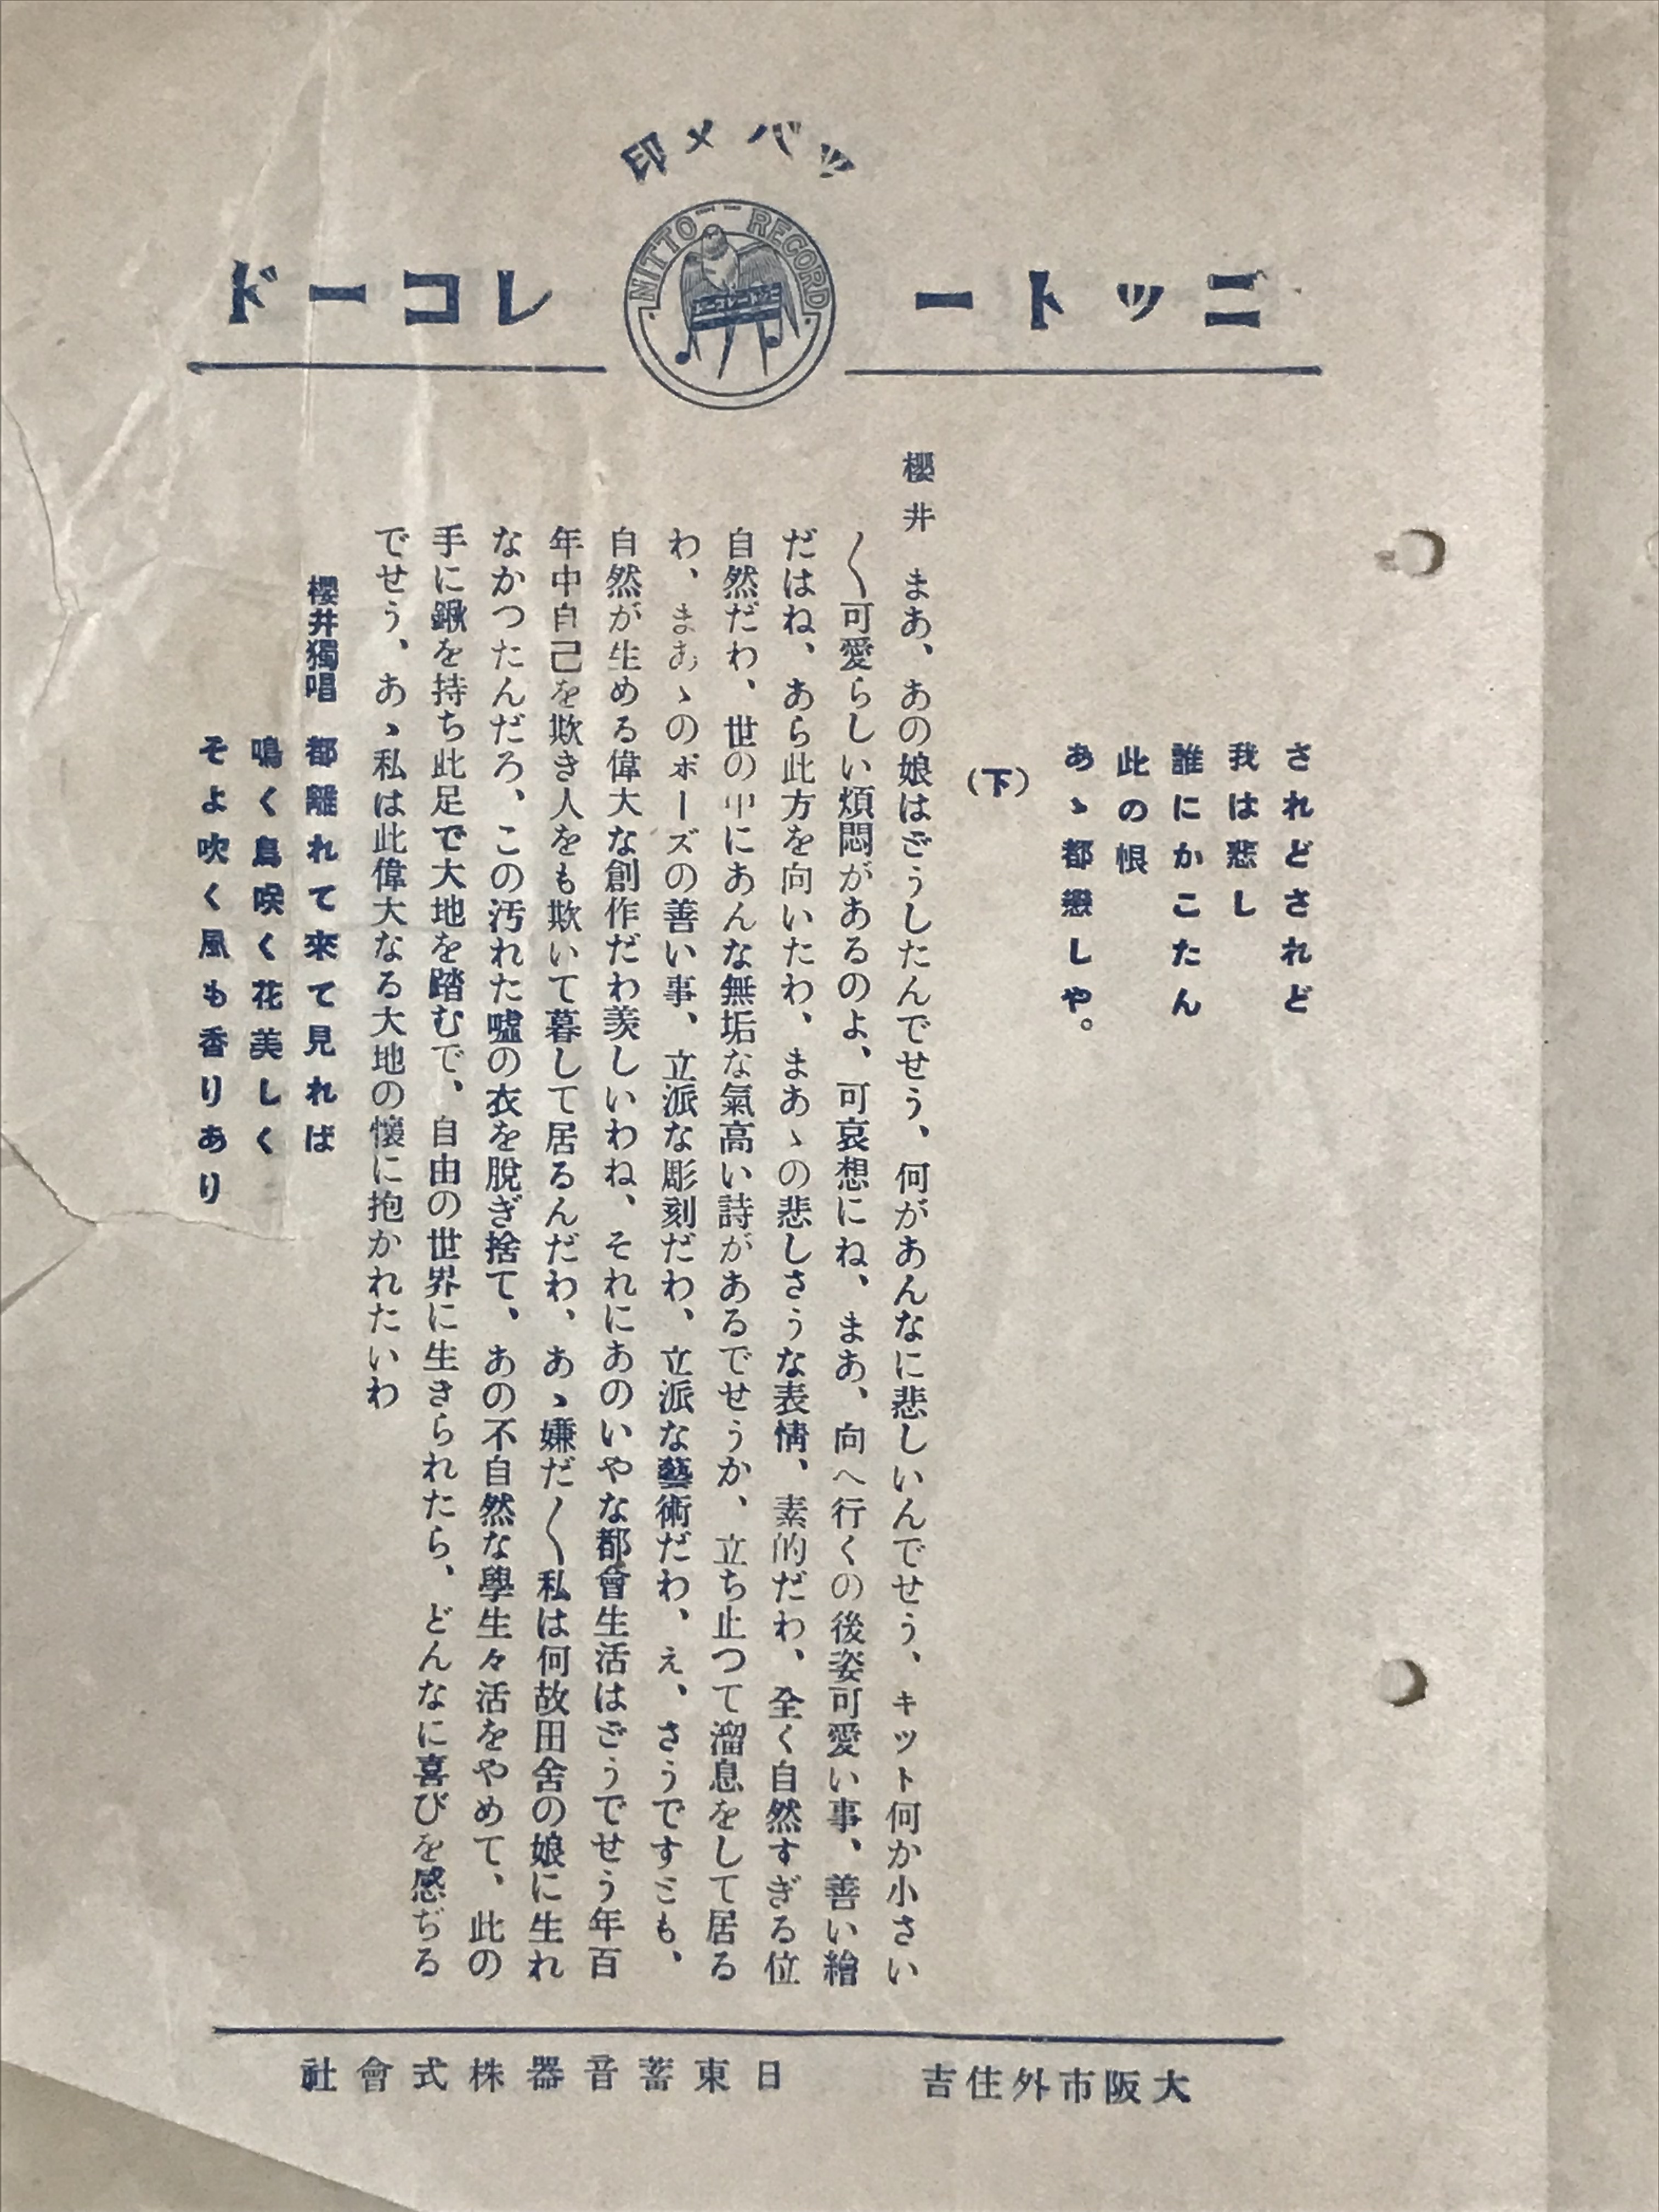 ツバメ印
ニットー レコード
NITTO RECORD
されどされど
我は悲し
誰にかこたん
此の恨
あゝ都戀しや。
(下)
櫻井 まあ、あの娘はどうしたんでせう、何があんなに悲しいんでせう、キット何か小さい
〱可愛らしい煩悶があるのよ、可哀想にね、まあ、向へ行くの後姿可愛い事、善い繪
だはね、あら此方を向いたわ、まあゝの悲しさうな表情、素的だわ、全く自然すぎる位
自然だわ、世の中にあんな無垢な氣高い詩があるでせうか、立ち止つて溜息をして居る
わ、まあゝのポーズの善い事、立派な彫刻だわ、立派な藝術だわ、え、さうですとも、
自然が生める偉大な創作だわ羨しいわね、それにあのいやな都會生活はどうでせう年百
年中自己を欺き人をも欺いて暮して居るんだわ、あゝ嫌だ〱私は何故田舍の娘に生れ
なかつたんだろ、この汚れた嘘の衣を脫ぎ捨て、あの不自然な學生々活をやめて、此の
手に鍬を持ち此足で大地を踏むで、自由の世界に生きられたら、どんなに喜びを感ぢる
でせう、あゝ私は此偉大なる大地の懷に抱かれたいわ
櫻井獨唱 都離れて來て見れば
鳴く鳥咲く花美しく
そよ吹く風も香りあり
大阪市外住吉 日東蓄音器株式會社